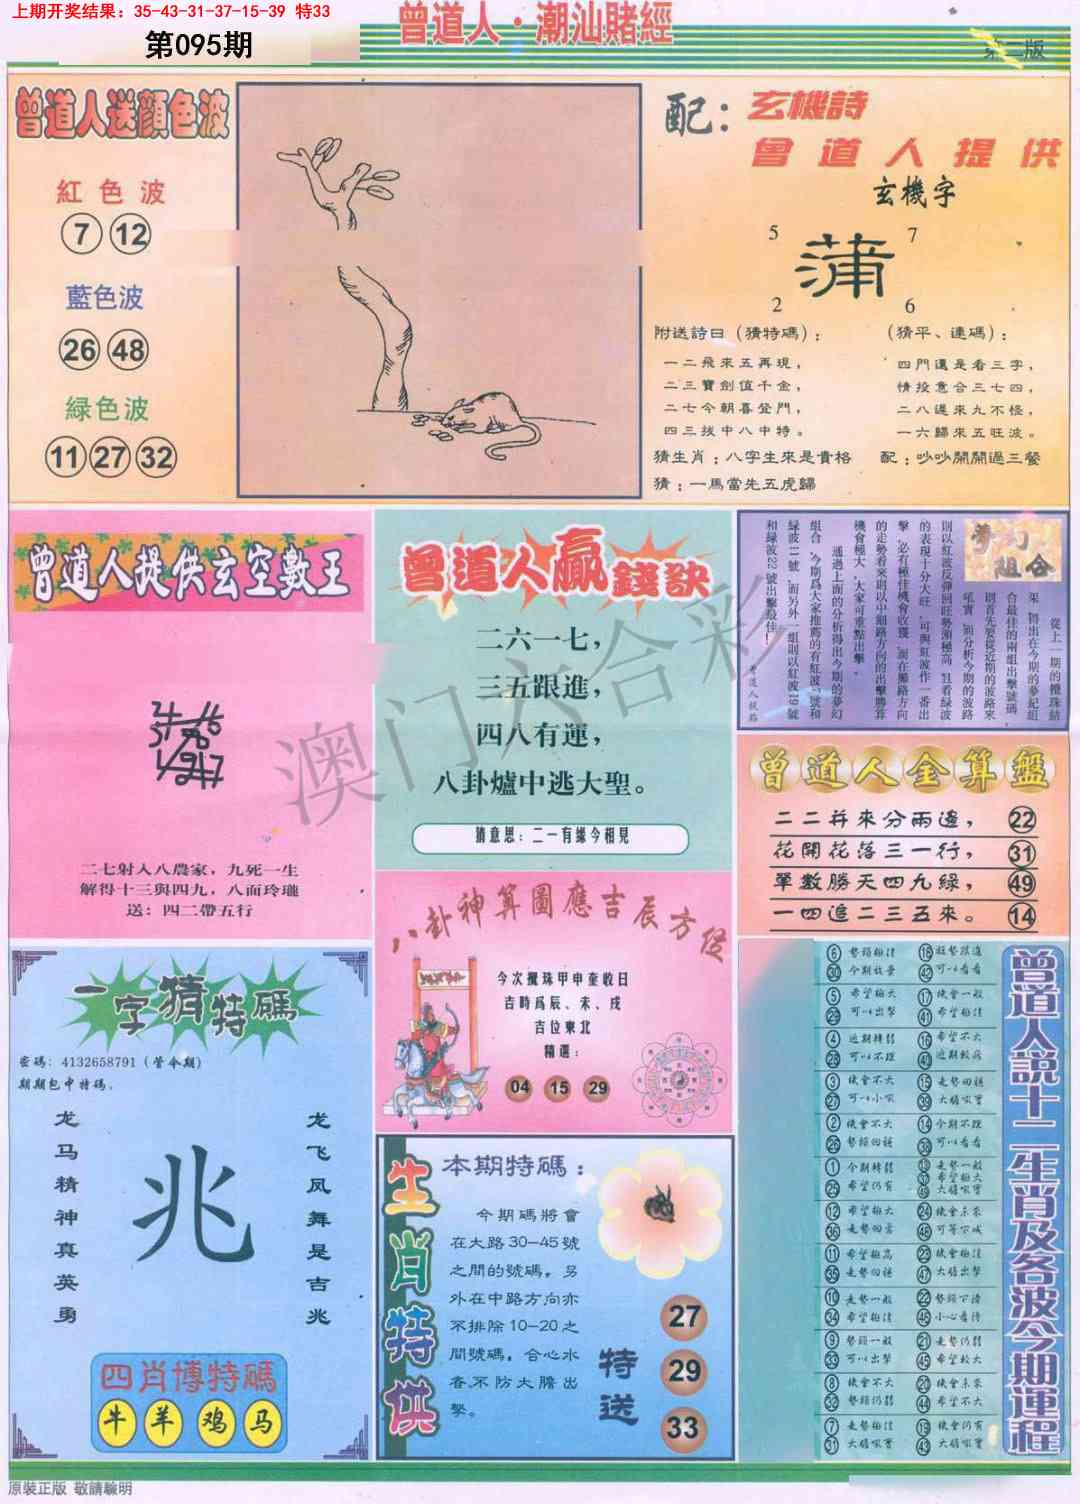 上期开奖结果：35-43-31-37-15-39 特33
第095期
曾道人·潮汕賭經
第二版
曾道人送顏色波
紅色波
7 12
藍色波
26 48
緑色波
11 27 32
配：
玄機詩
曾道人提供
玄機字
5 7
蒲
2 6
附送詩曰（猜特碼）：
一二飛來五再現，
二三寶劍值千金，
二七今朝喜登門，
四三拔中八中特。
猜生肖：八字生來是貴格
猜：一馬當先五虎歸
（猜平、連碼）：
四門還是看三字，
情投意合三七四，
二八遲來九不怪，
一六歸來五旺波。
配：吵吵開開過三餐
曾道人提供玄空數王
二七射入八農家，九死一生
解得十三與四九，八面玲瓏
送：四二帶五行
曾道人贏錢訣
二六一七，
三五跟進，
四八有運，
八卦爐中逃大聖。
猜意思：二一有緣今相見
夢幻組合
從上一期的攪珠結
果，得出在今期的夢幻組
合最佳的兩組出擊號碼，
則首先要從近期的波路來
証實，而分析今期的波路
則以紅波反彈回旺勢頭極高，且看緑波
的表現十分大旺，可與紅波作一番出
擊，必有極佳機會收獲，而在攤路方向
的走勢看來則以中細路方向的出擊勝算
機會極大，大家可重點出擊。
通過上面的分析得出今期的夢幻
組合，今期爲大家推薦的有紅波1號和
緑波11號，而另外一組則以紅波19號
和緑波22號出擊最佳！
曾道人金算盤
二二并來分兩邊， 22
花開花落三一行， 31
單數勝天四九緑， 49
一四追二三五來。 14
八卦神算圖應吉辰方位
今次攪珠甲申奎收日
吉時爲辰、未、戌
吉位東北
精選：
04 15 29
一字猜特碼
密碼：4132658791（管令期）
期期包中特碼。
龙马精神真英勇
兆
龙飞凤舞是吉兆
四肖博特碼
牛 羊 鸡 马
生肖特供
本期特碼：
今期碼將會
在大路30-45號
之間的號碼，另
外在中路方向亦
不排除10-20之
間號碼，合心水
者不防大膽出
擊。
特送
27
29
33
曾道人説十二生肖及各波今期運程
6 30 勢頭極佳 今期放棄
18 42 旺勢跟進 可以看看
5 29 希望極大 可以出擊
17 41 機會一般 希望極佳
4 28 近期轉弱 可以不理
16 40 希望不大 近期較旺
3 27 機會不大 可以小吼
15 39 走勢回穩 大膽吼實
2 26 機會不大 勢頭回穩
14 38 今期不理 可以看看
1 25 今期轉弱 希望仍有
13 37 49 走勢一般 希望極大 大膽吼實
12 36 希望極大 走勢回落
24 48 機會未來 可等下喊
11 35 希望極高 走勢回穩
23 47 機會極佳 大膽出擊
10 34 走勢一般 希望極佳
22 46 勢頭下滑 小心看待
9 33 勢頭一般 可以出擊
21 45 走勢仍弱 希望較大
8 32 機會不大 勢頭仍弱
20 44 機會未來 希望不大
7 31 走勢極佳 大膽吼實
19 43 機會仍有 大膽吼實
原裝正版 敬請驗明
澳门六合彩